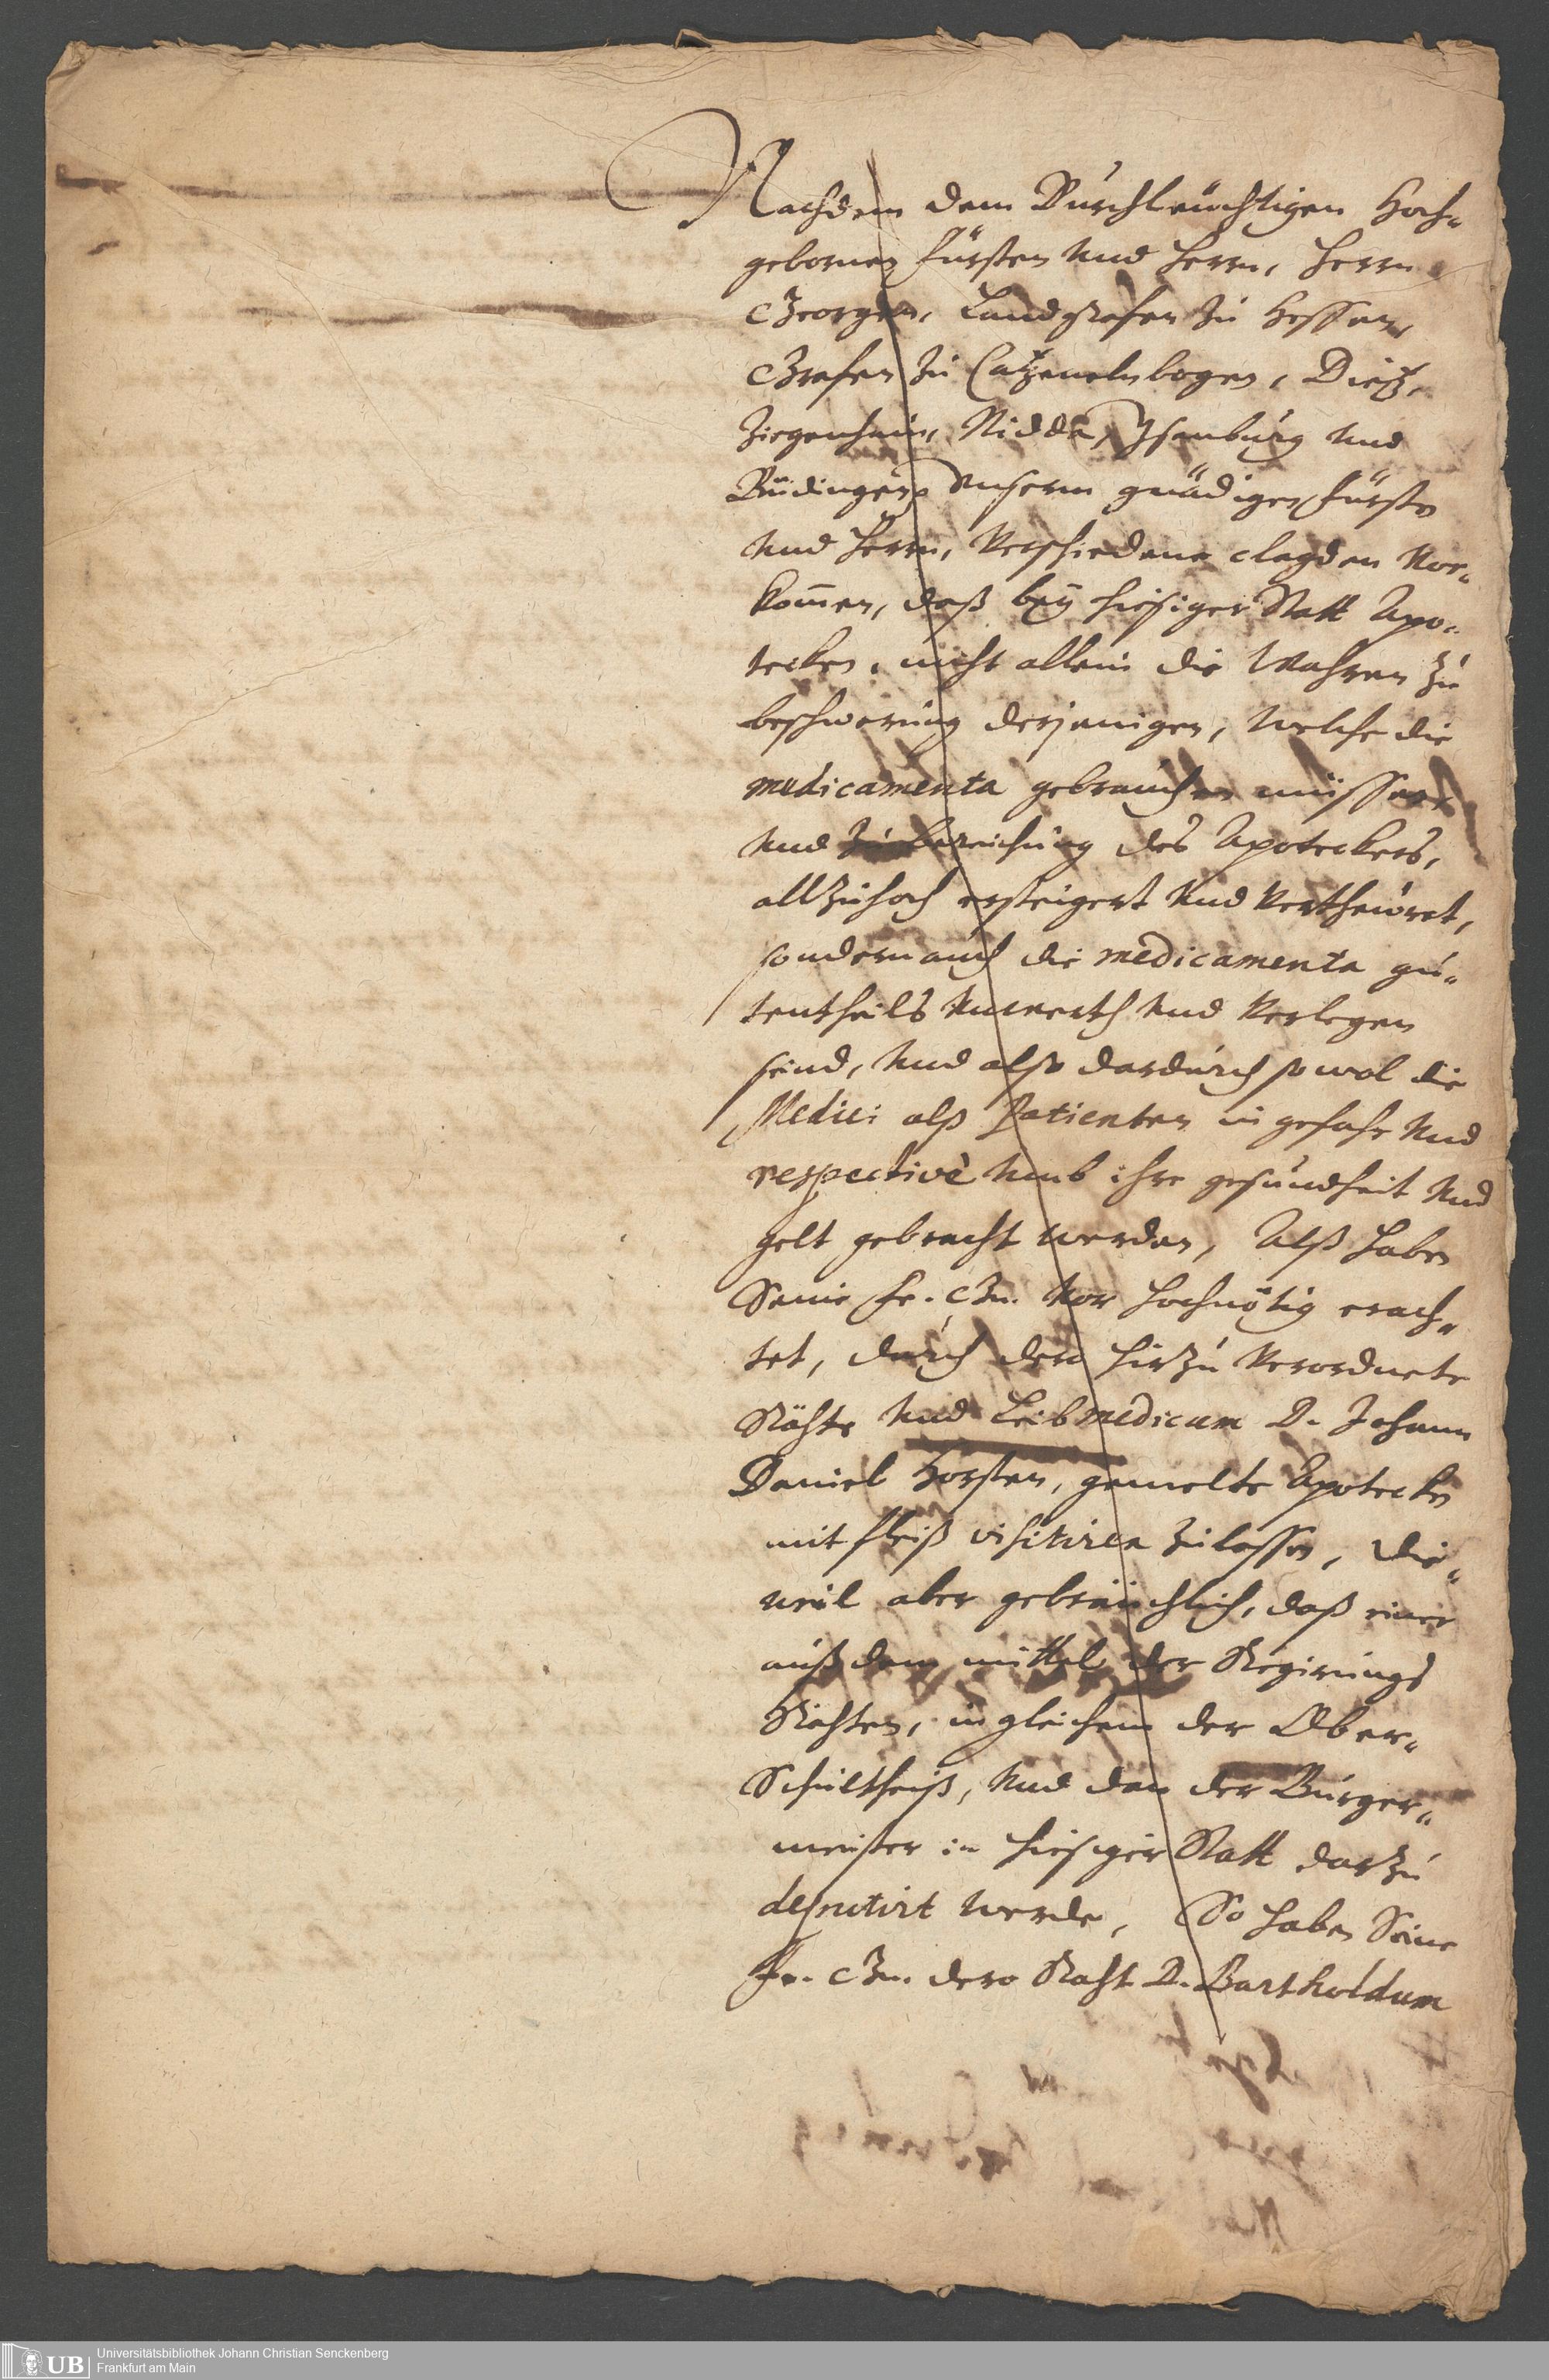 Nachdem dem Durchleuchtigen Hoch-
gebornen Fürsten und Herrn, Herrn
Georgen, Landgrafen zu Hessen,
Grafen zu Catzenelnbogen, Dietz,
Ziegenhain, Nidda, Isenburg und
Büdingen, Unserm gnädigen Fürsten
und Herrn, verschiedene clagden vor-
kom̄en, daß beÿ hiesiger Statt Apo-
tecken, nicht allein die Wahren zu
beschwerung derjenigen, welche die
medicamenta gebrauchen müssen,
und zu bereichung des Apoteckers,
allzuhoch ersteigert und vertheuret,
sondern auch die medicamenta gu-
tentheils unwerth und verlegen
seind, und also dardurch so wol die
Medici alß Patienten in gefahr und
respectivè umb ihre gesundheit und
gelt gebracht werden, Alß haben
Seine Fr. Gn. vor hochnötig erach-
tet, durch dero hirzu verordnete
Räthe und Leibmedicum D. Johann
Daniel Horsten, gemelte Apotecken
mit fleiß visitiren zulassen, die-
weil aber gebräuchlich, daß einer
auß dem mittel der Regirungs
Räthen, ingleichem der Ober-
Schultheiß, und dan der Bürger-
meister in hiesiger Statt darzu
deputirt werde, So haben Seine
Fr. Gn. dero Raht D. Bartholdum
UB Universitätsbibliothek Johann Christian Senckenberg
Frankfurt am Main